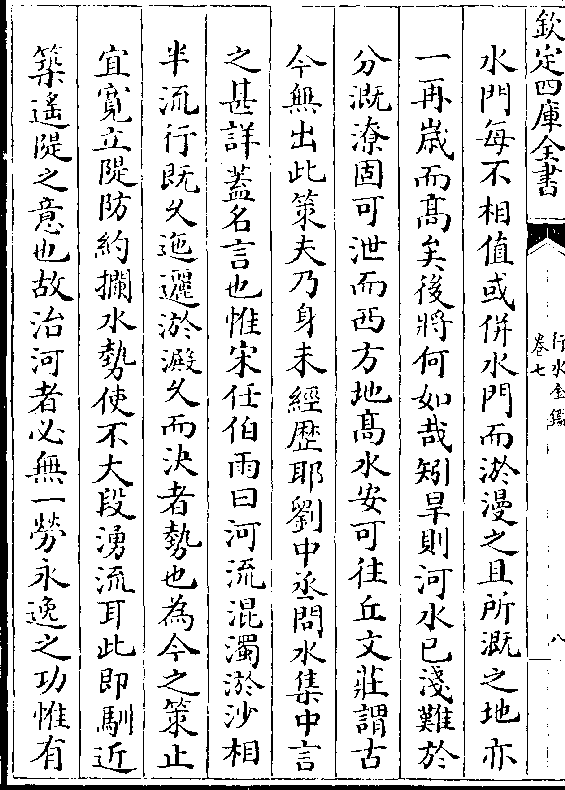 欽定四庫全書
行水金鑑
卷七
八
水門每不相值或併水門而淤漫之且所溉之地亦
一再歳而髙矣後將何如哉矧旱則河水已淺難於
分溉潦固可泄而西方地髙水安可往丘文莊謂古
今無出此策夫乃身未經歴耶劉中丞問水集中言
之甚詳葢名言也惟宋任伯雨曰河流混濁淤沙相
半流行既乆迤邐淤澱乆而決者勢也為今之策止
宜寛立隄防約攔水勢使不大段湧流耳此即馴近
築遙隄之意也故治河者必無一勞永逸之功惟有